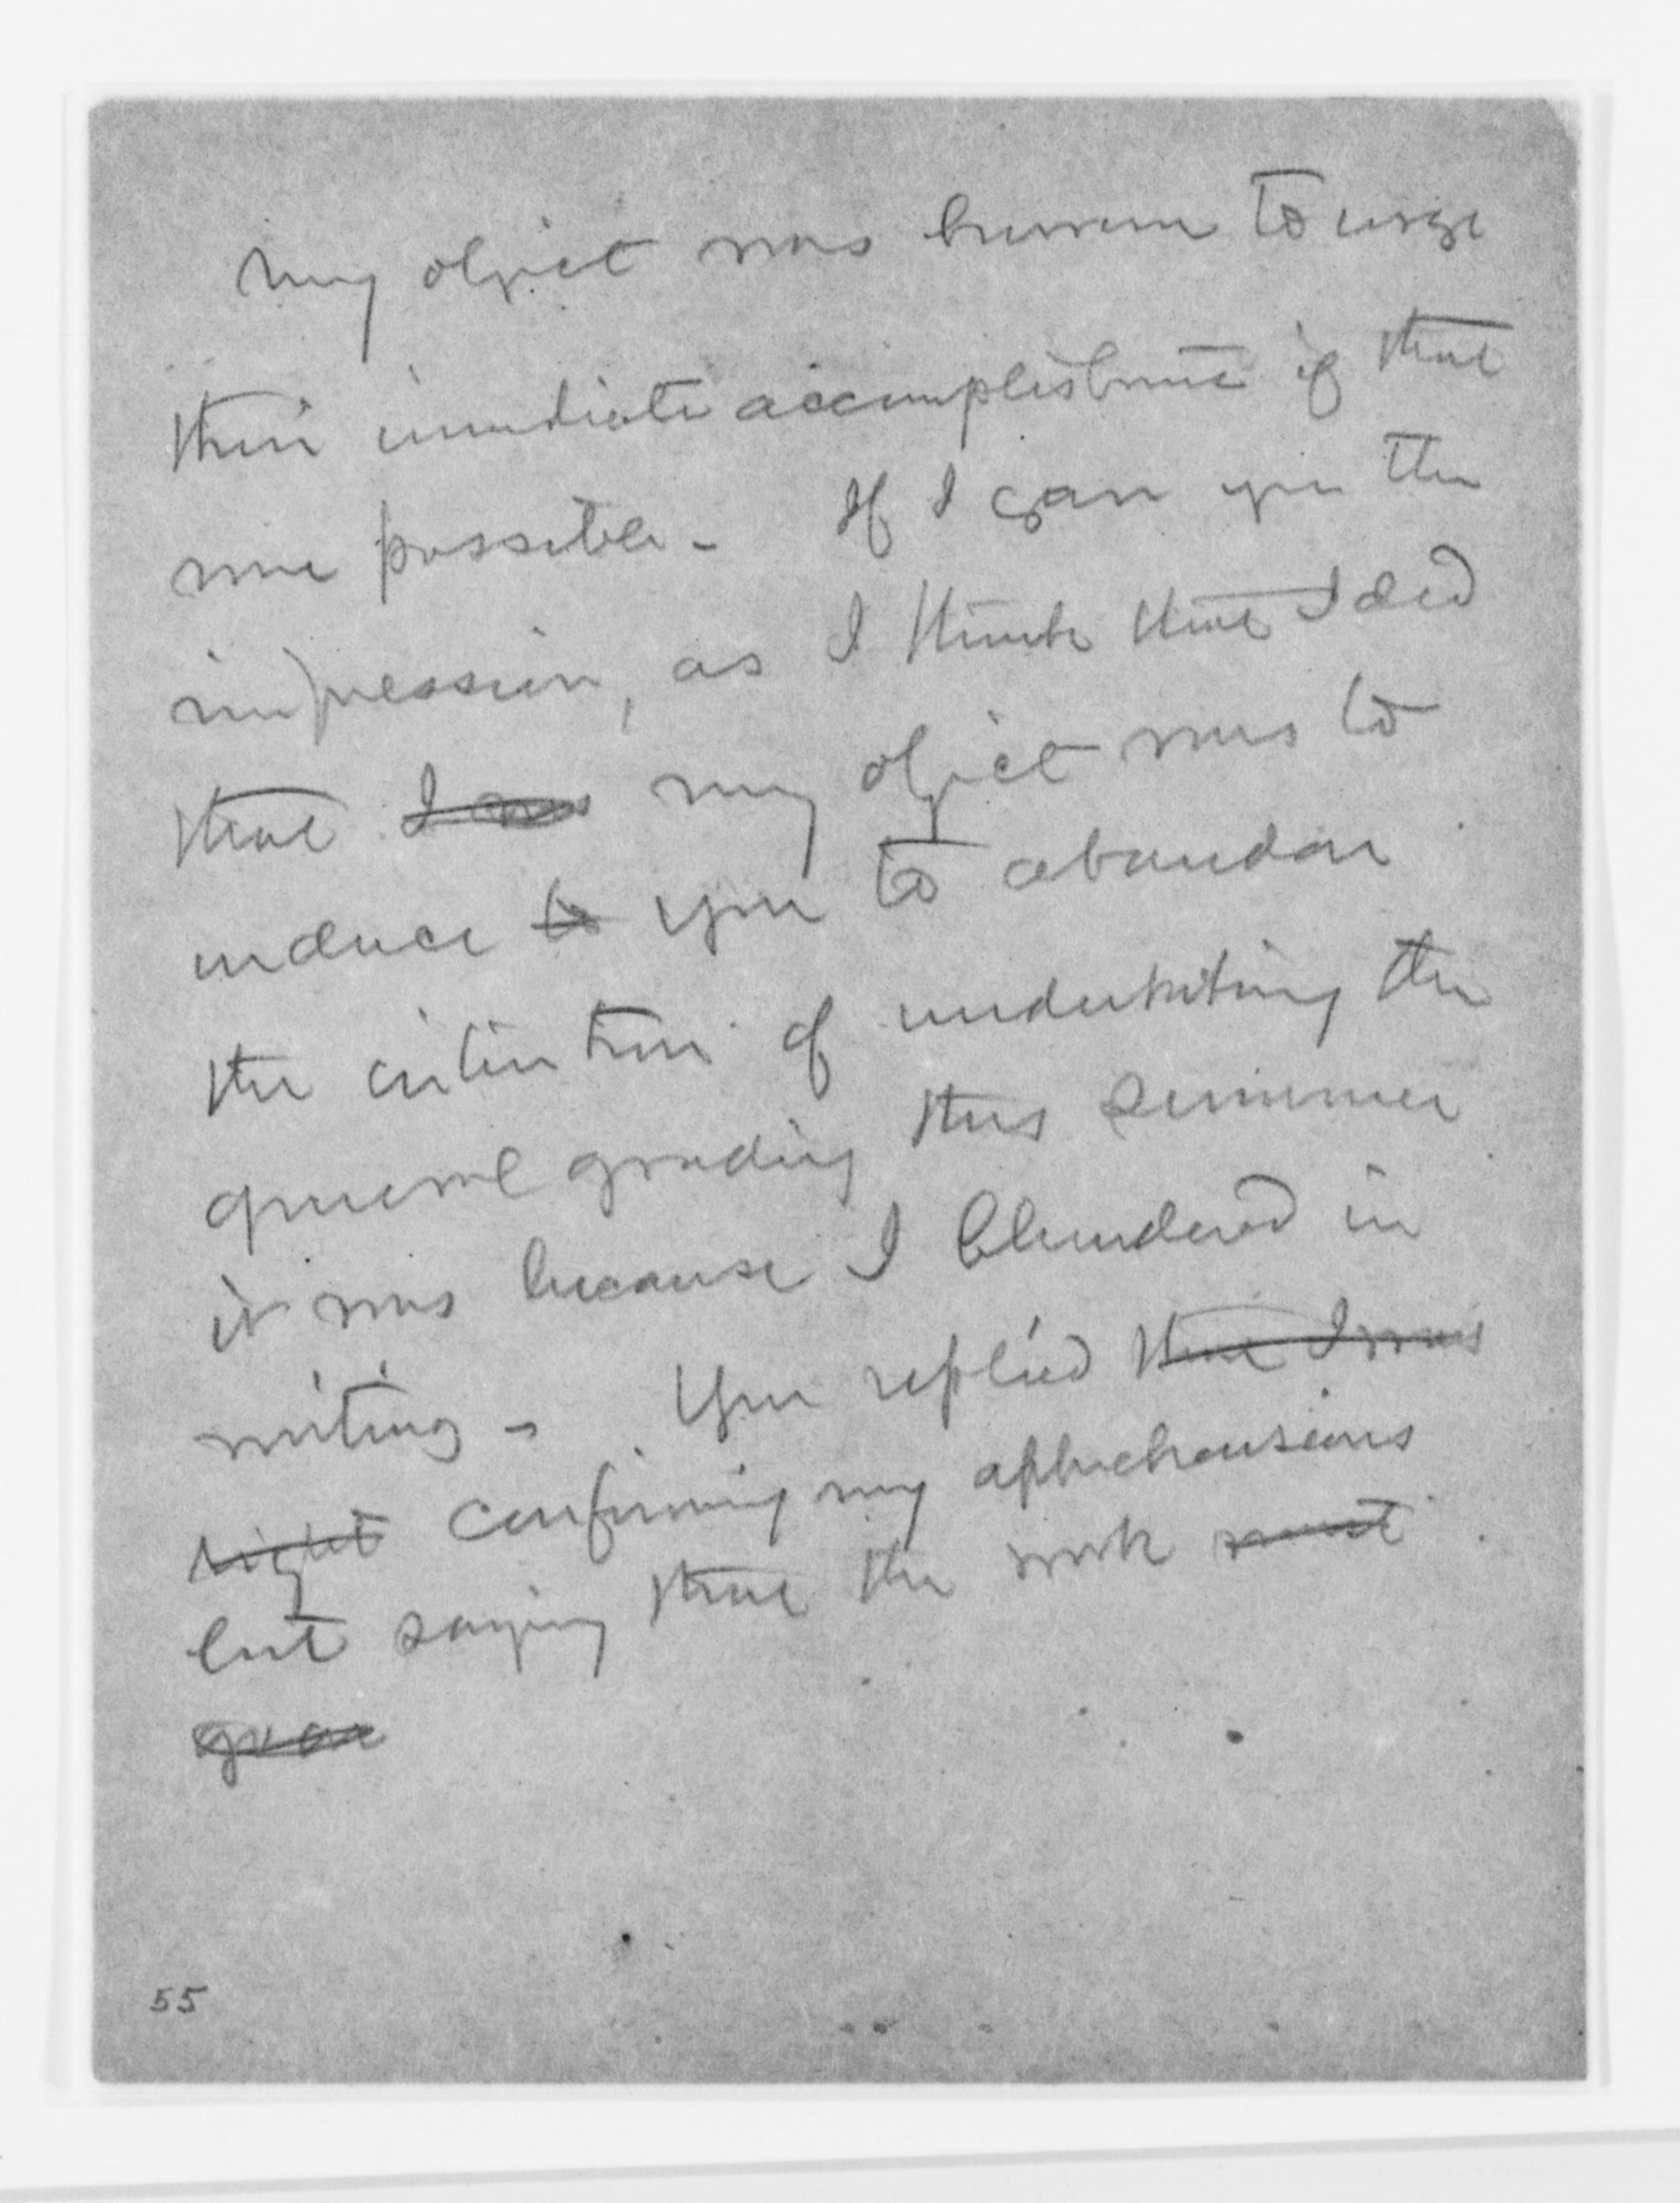 My object was however to urge
their immediate accomplishment if that
were possible - If I gave you the
impression, as I think that I did
that I was my object was to
induce to you to abandon
the intention of undertaking the
general grading this summer
it was because I blundered in
writing - You replied that I was
right confirming my apprehensions
but saying that the work must
55